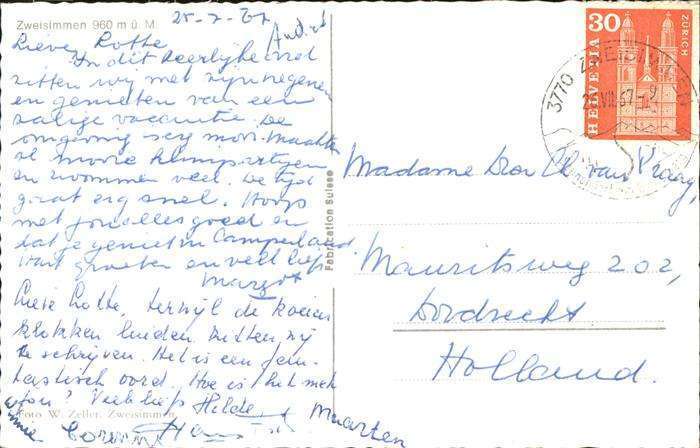 Zweisimmen 960 m ü. M.
25-7-67
Lieve Lotte,
In dit heerlijke oord
zitten wij met zijn negenen
en genieten van een
zalige vacantie. De
omgeving is erg mooi. Maakten
al mooie klimpartijen
en zwommen veel. De tijd
gaat erg snel. Hoop
met jou alles goed en
dat je geniet in Camperland.
Hart. groeten en veel liefs
Margot
Lieve Lotte, terwijl de koeien
klokken luiden zitten wij
te schrijven. Het is een fan-
tastisch oord. Hoe is het met
jou? Veel liefs Hilde
Maarten
Foto W. Zeller, Zweisimmen
Fabrication Suisse
30
HELVETIA
ZÜRICH
3770 ZWEISIMMEN
VII.67
Madame van Praag,
Mauritsweg 202,
Dordrecht
Holland.